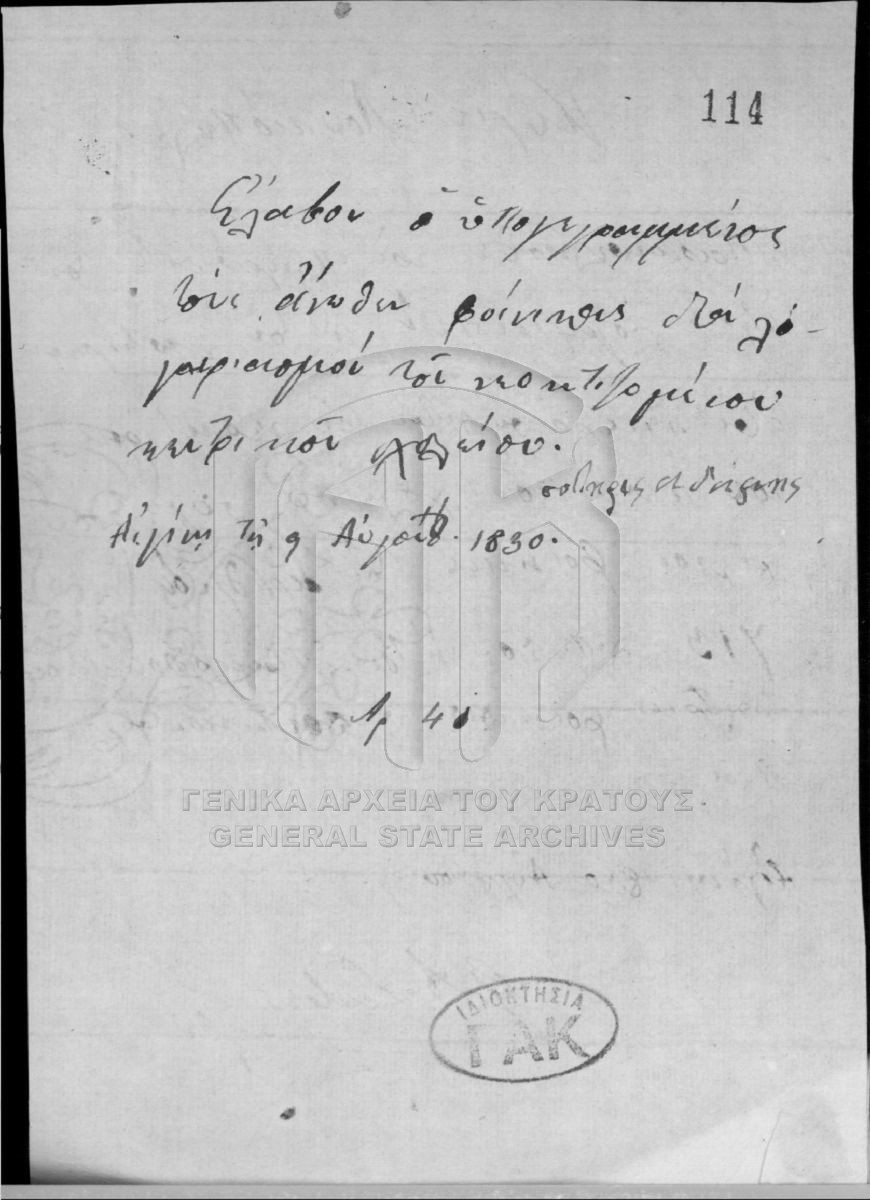 114
Ἔλαβον ὁ ὑπογεγραμμένος
τοὺς ἄνωθεν φοίνικας διὰ λο-
γαριασμὸν τοῦ νεοκτιζομένου
κεντρικοῦ σχολείου.
σοτηρες
Αἰγίνῃ τῇ 9 Αὐγούστου 1830.
Αρ 41
ΓΕΝΙΚΑ ΑΡΧΕΙΑ ΤΟΥ ΚΡΑΤΟΥΣ
GENERAL STATE ARCHIVES
ΙΔΙΟΚΤΗΣΙΑ
ΓΑΚ